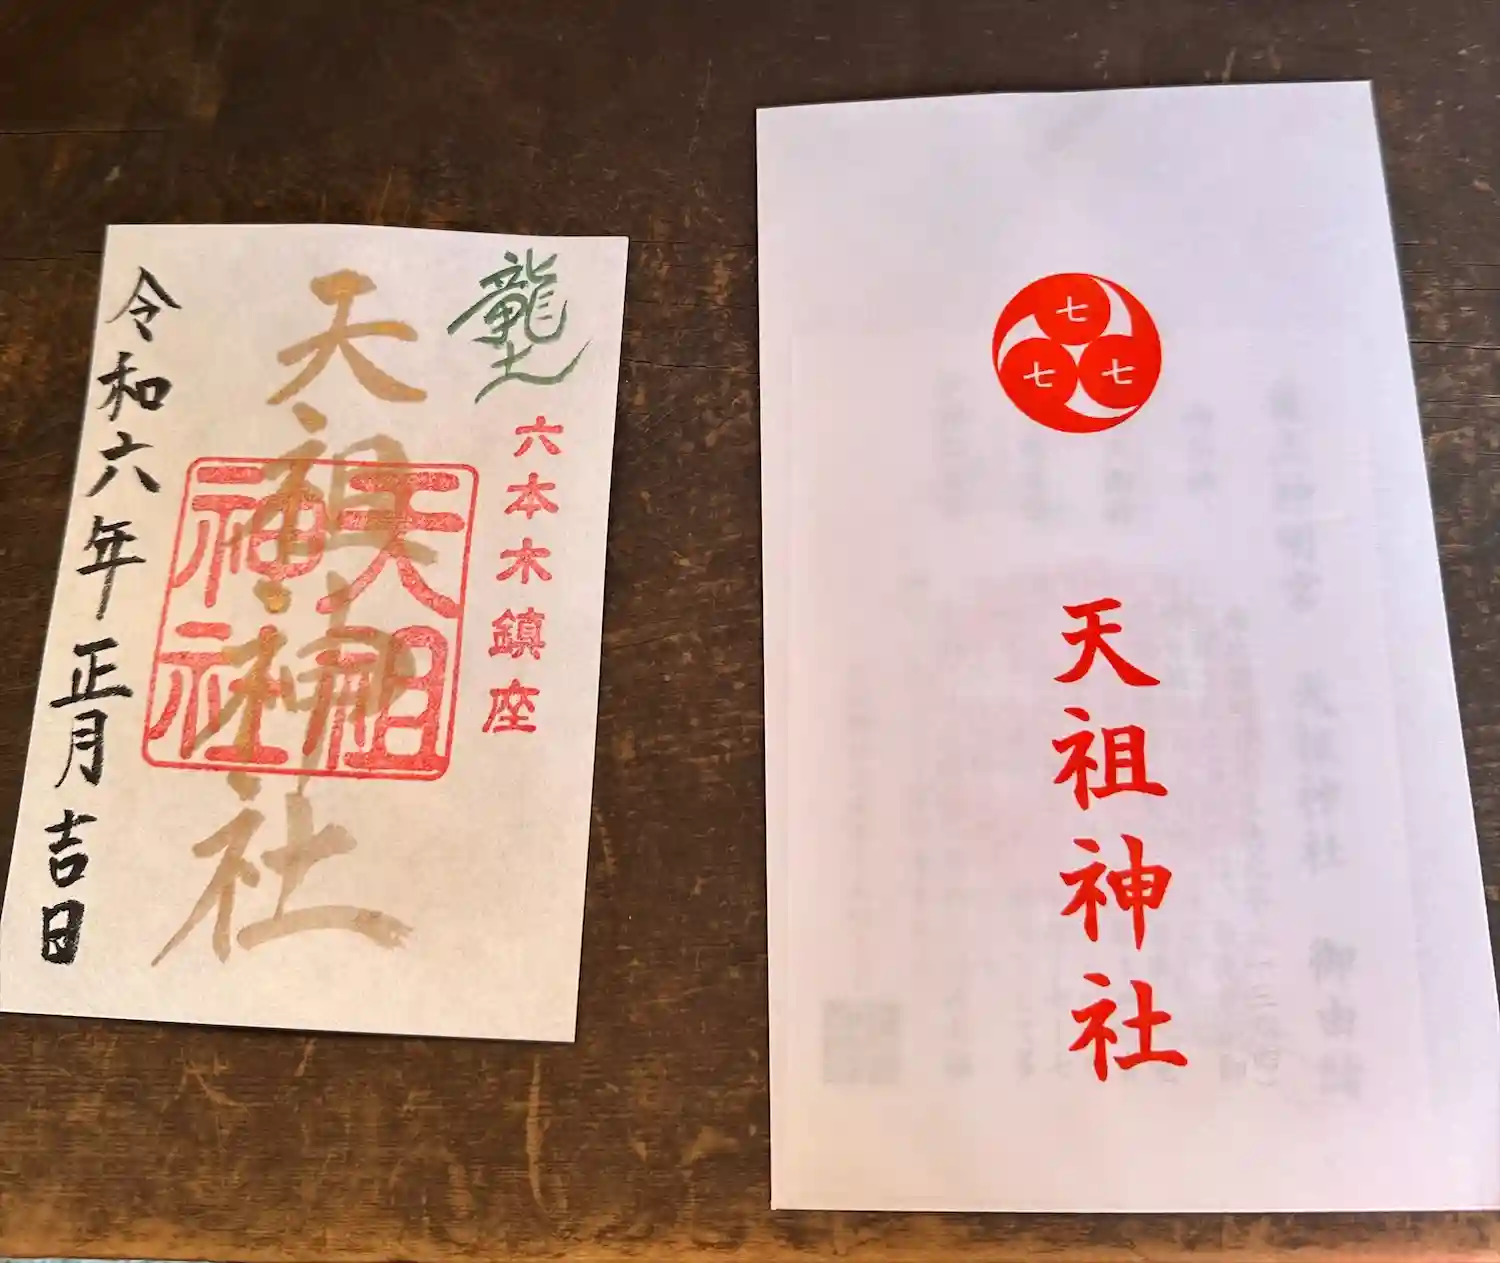 龍土
六本木鎮座
天祖神社
天祖
神社
令和六年正月吉日
七
七
七
天祖神社